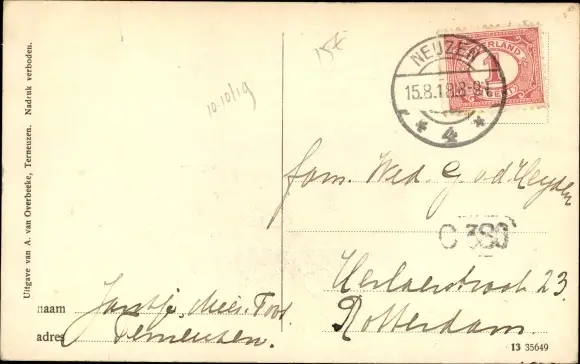 Uitgave van A. van Overbeeke, Terneuzen. Nadruk verboden.
10-10/19
15
NEUZEN
15.8.18.8-9V
4
NEDERLAND
1
CENT
fam. Wed. G. v.d. Heyden
C 380
Herlaerstraat 23
Rotterdam.
naam Jantje Meis-Toot
adres Terneuzen.
13 35649